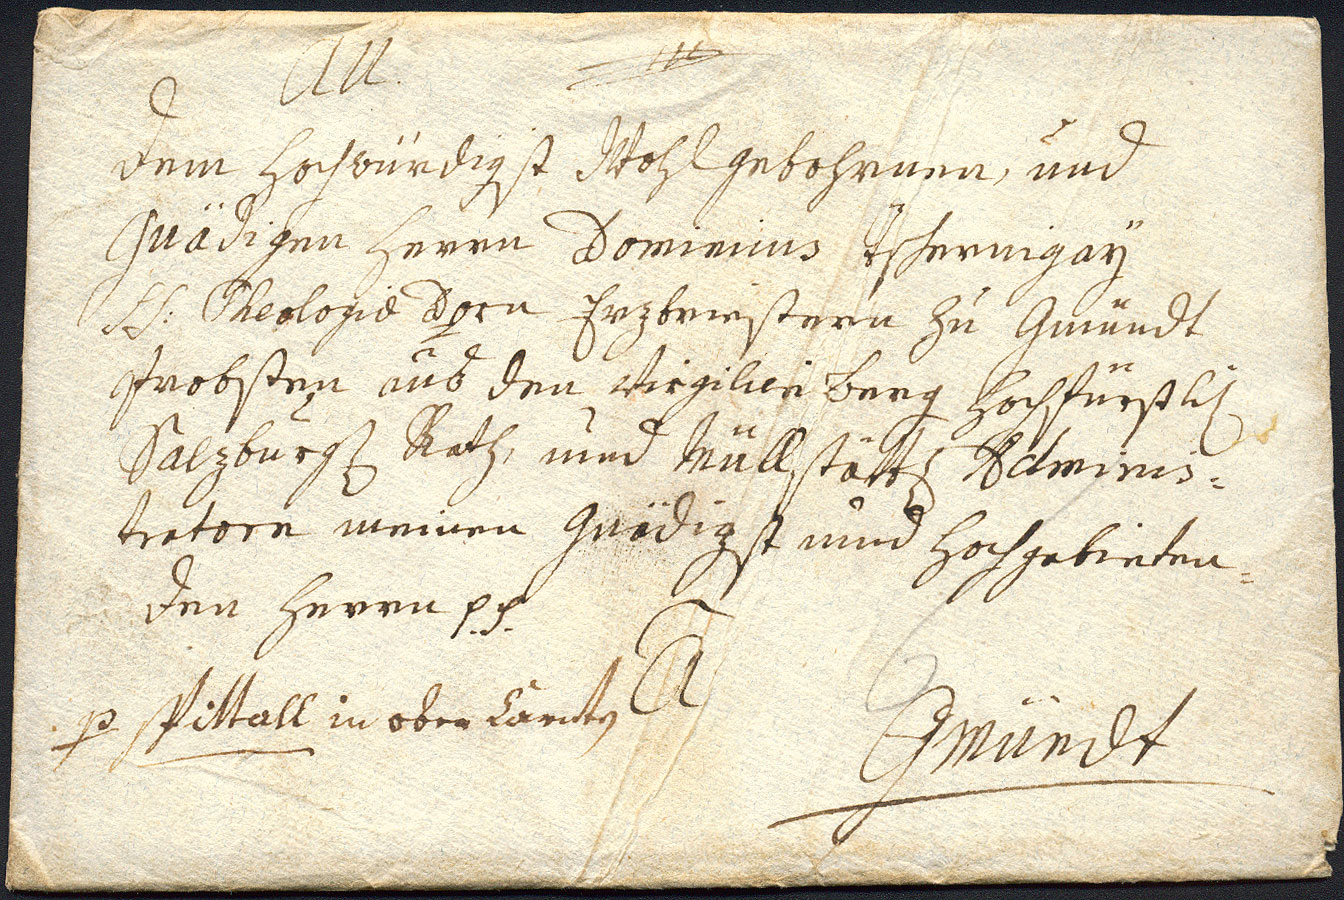 An.
Dem Hochwürdigst Wohlgebohrnen, und
Gnädigen Herrn Dominicus Tschernigaÿ
SS: Theologiæ Dorn Erzbriestern zu Gmündt
Probsten aus den Virgilien Berg Hochfürstl:
Salzburg: Rath, und Müllstätt: Adminis=
tratorn meinen Gnädigst und Hochgebieten=
den Herrn p.p.
A
p Spittall in ober Carnten
Gmündt